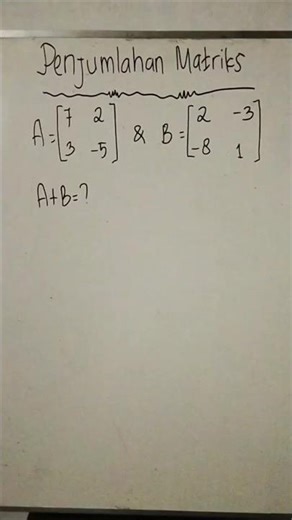 Penjumlahan Matriks
A=[7 2
3 -5] & B=[2 -3
-8 1]
A+B=?